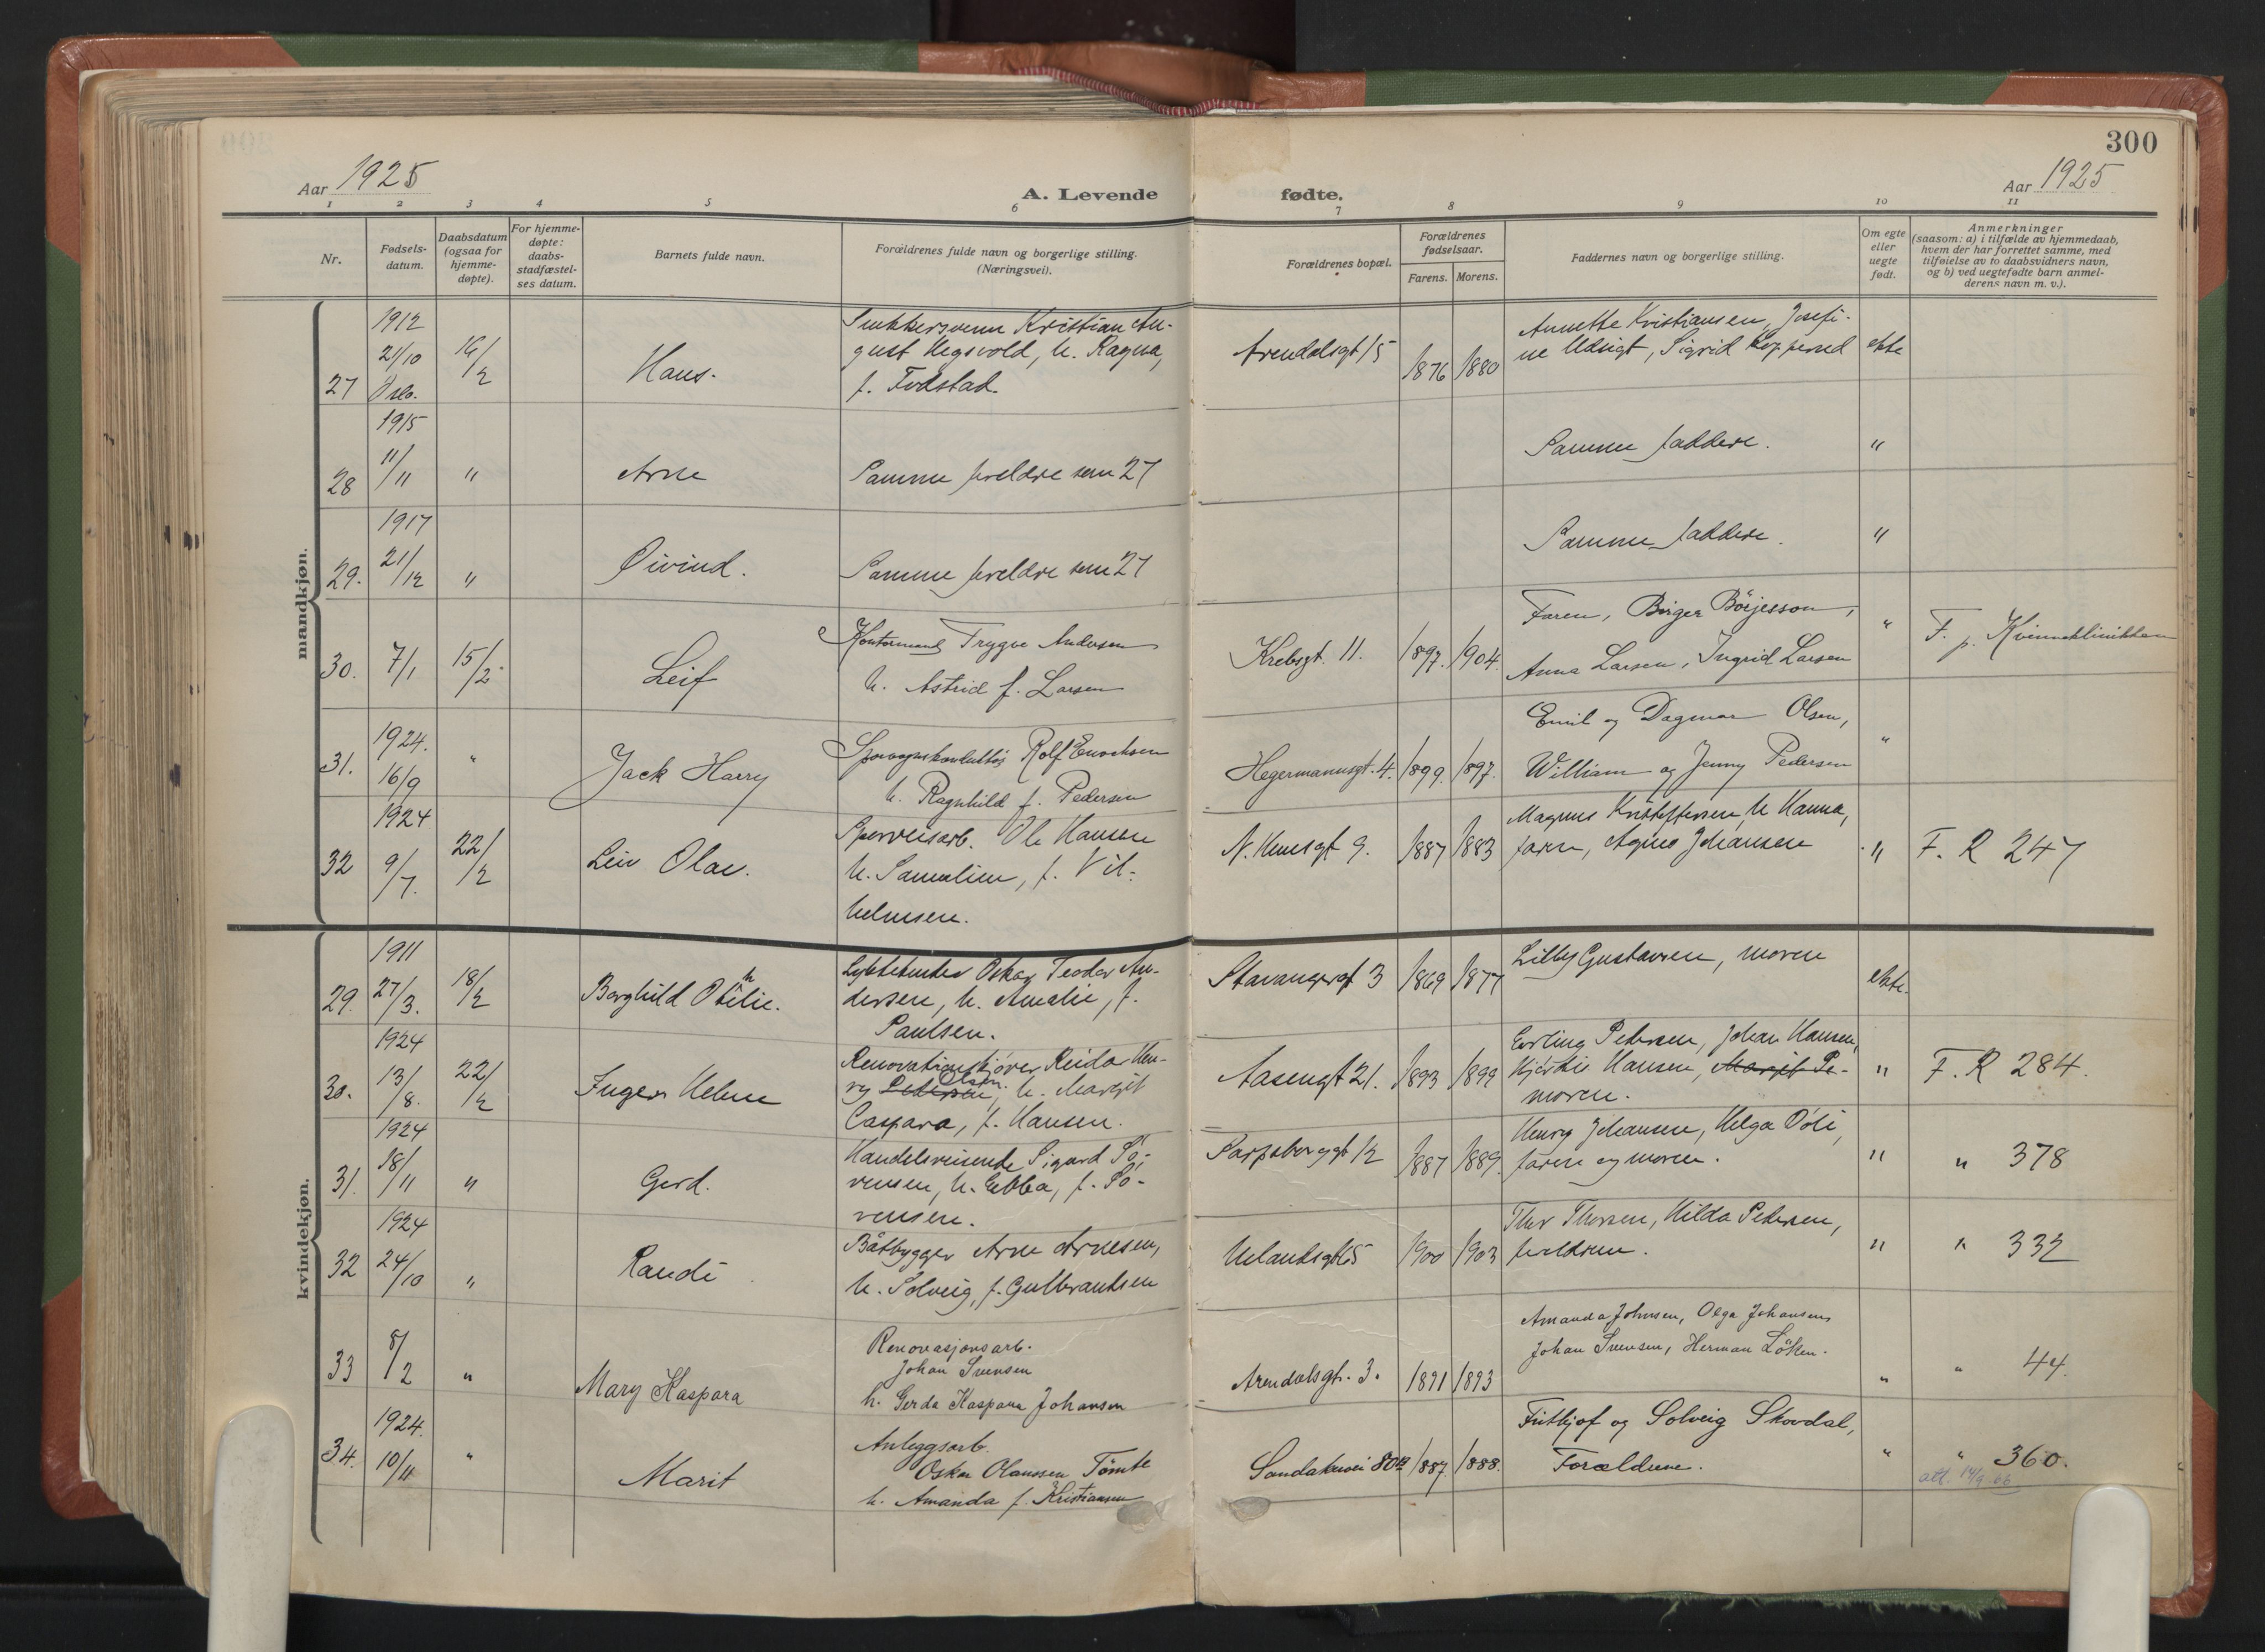 300
Aar 1925
A. Levende fødte.
Aar 1925
1 2 3 4 5 6 7 8 9 10 11
Nr.
Fødsels-
datum.
Daabsdatum
(ogsaa for
hjemme-
døpte).
For hjemme-
døpte:
daabs-
stadfæstel-
ses datum.
Barnets fulde navn.
Forældrenes fulde navn og borgerlige stilling.
(Næringsvei).
Forældrenes bopæl.
Forældrenes
fødselsaar.
Farens. Morens.
Faddernes navn og borgerlige stilling.
Om egte
eller
uegte
født.
Anmerkninger
(saasom: a) i tilfælde av hjemmedaab,
hvem der har forrettet samme, med
tilføielse av to daabsvidners navn,
og b) ved uegtefødte barn anmel-
derens navn m. v.).
mandkjøn.
27
1912
21/10
Oslo.
Hans.
Snekkersvenn Kristian Au-
gust Hegsvold, h. Ragna,
f. Fodstad.
Arendalsgt 15
1876 1880
Annette Kristiansen, Josefi-
ne Udsigt, Sigrid
ekte
28
1915
11/11
"
Arne
Samme foreldre som 27
Samme faddere.
"
29.
1917
21/12
"
Øivind.
Samme foreldre som 27
Samme faddere.
"
30.
7/1
15/2.
Leif
Kontormand Trygve Andersen
h. Astrid f. Larsen
Krebsgt. 11.
1897. 1904.
Faren, Birger Börjesson,
Anna Larsen, Ingrid Larsen
"
F. p. Kvinneklinikken
31.
1924.
16/9
"
Jack Harry
Sporvognskonduktør Rolf Enochsen
h. Ragnhild f. Pedersen
Hegermannsgt. 4.
1899. 1897.
Emil og Dagmar Olsen,
William og Jenny Pedersen
"
32
1924
9/7.
22/2
Leiv Olav.
Sporveisarb. Ole Hansen
h. Samaline, f. Vil-
helmsen.
1887 1883
Magnus Kristoffersen, h. Hanna,
faren, Agnes Johansen
"
F. R 247
kvindekjøn.
29.
1911
27/3.
18/2
Borghild Othilie.
Oskar Teodor An-
dersen, h. Amalie, f.
Paulsen.
Stavangergt 3
1869 1877
Lilly Gustavsen, moren
ekte.
30.
1924
13/8.
22/2
Inger Helene
Renovationskjører Reidar Hen-
ry Pedersen Olsen, h. Margit
Caspara, f. Hansen.
Aasengt 21.
1893 1899
Erling Petersen, Johan Hansen,
Kjerstie Hansen, Margit Pe-
moren.
"
F. R 284.
31.
1924
18/11
"
Gerd.
Handelsreisende Sigurd Sö-
rensen, h. Ebba, f. Sö-
rensen.
Sarpsborggt 12
1887 1889.
Henry Johansen, Helga Döli,
faren og moren.
"
" 378
32
1924
24/10
"
Randi
Båtbygger Arne Arnesen,
h. Solveig, f. Gulbrandsen
Uelandsgt 65
1900 1903
Thor Thorsen, Hilda Petersen,
foreldrene.
"
" 332
33
8/2
"
Mary Kaspara
Renovasjonsarb.
Johan Svensen
h. Gerda Kaspara Johansen
Arendalsgt. 3.
1891 1893
Amanda Johnsen, Olga Johansen,
Johan Svensen, Herman Löken.
"
" 44.
34.
1924.
10/11
"
Marit
Anleggsarb.
Oskar Olaussen Tömte
h. Amanda f. Kristiansen
Sandakervei 80
1887. 1888.
Fritkjof og Solveig Skovdal,
Forældrene.
"
" 360.
att. 14/9-66